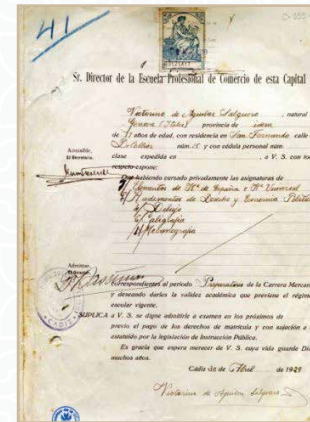 41
Sr. Director de la Escuela Profesional de Comercio de esta Capital
Victorina de Aguilar Salguero, natural
Genova (Italia) provincia de idem
de años de edad, con residencia en San Fernando calle
núm. 15 y con cédula personal núm.
clase expedida en , a V. S. con todo
respeto expone:
Que habiendo cursado privadamente las asignaturas de
Elementos de Hª de España e Hª Universal
Rudimentos de Derecho y Economia Politica
Dibujo
Caligrafia
Mecanografia
Admisible,
El Secretario,
Admitase
Correspondientes al período Preparatorio de la Carrera Mercantil
y deseando darles la validez académica que previene el régimen
escolar vigente.
SUPLICA a V. S. se digne admitirle a examen en los próximos de
previo el pago de los derechos de matrícula y con sujeción a lo
estatuído por la legislación de Instrucción Pública.
Es gracia que espera merecer de V. S. cuya vida guarde Dios
muchos años.
Cádiz de Abril de 1929
Victorina de Aguilar Salguero
CADIZ